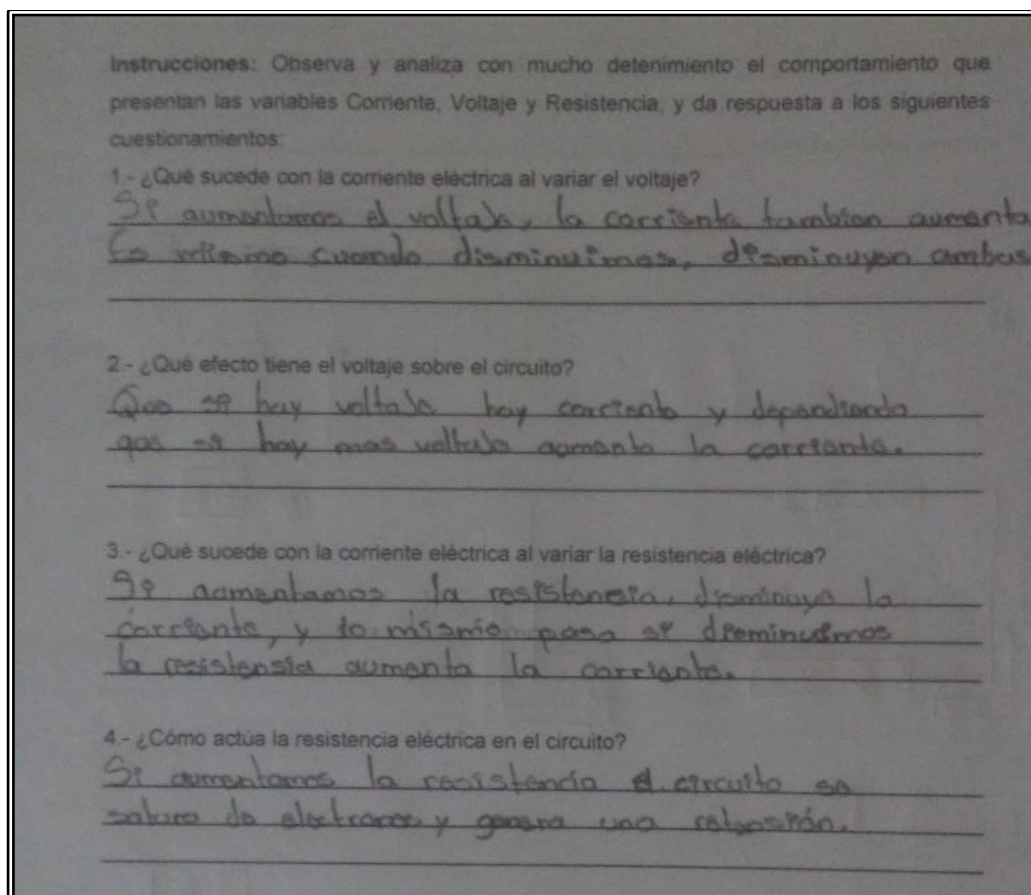 Instrucciones: Observa y analiza con mucho detenimiento el comportamiento que
presentan las variables Corriente, Voltaje y Resistencia, y da respuesta a los siguientes
cuestionamientos:
1.- ¿Qué sucede con la corriente eléctrica al variar el voltaje?
Si aumentamos el voltaje, la corriente tambien aumenta
Lo mismo cuando disminuimos, disminuyen ambas
2.- ¿Qué efecto tiene el voltaje sobre el circuito?
Que si hay voltaje hay corriente y dependiendo
que si hay mas voltaje aumenta la corriente.
3.- ¿Qué sucede con la corriente eléctrica al variar la resistencia eléctrica?
Si aumentamos la resistencia, disminuye la
corriente, y lo mismo pasa si disminuimos
la resistensia aumenta la corriente.
4.- ¿Cómo actúa la resistencia eléctrica en el circuito?
Si aumentamos la resistencia el circuito se
satura de electrones y genera una retensión.